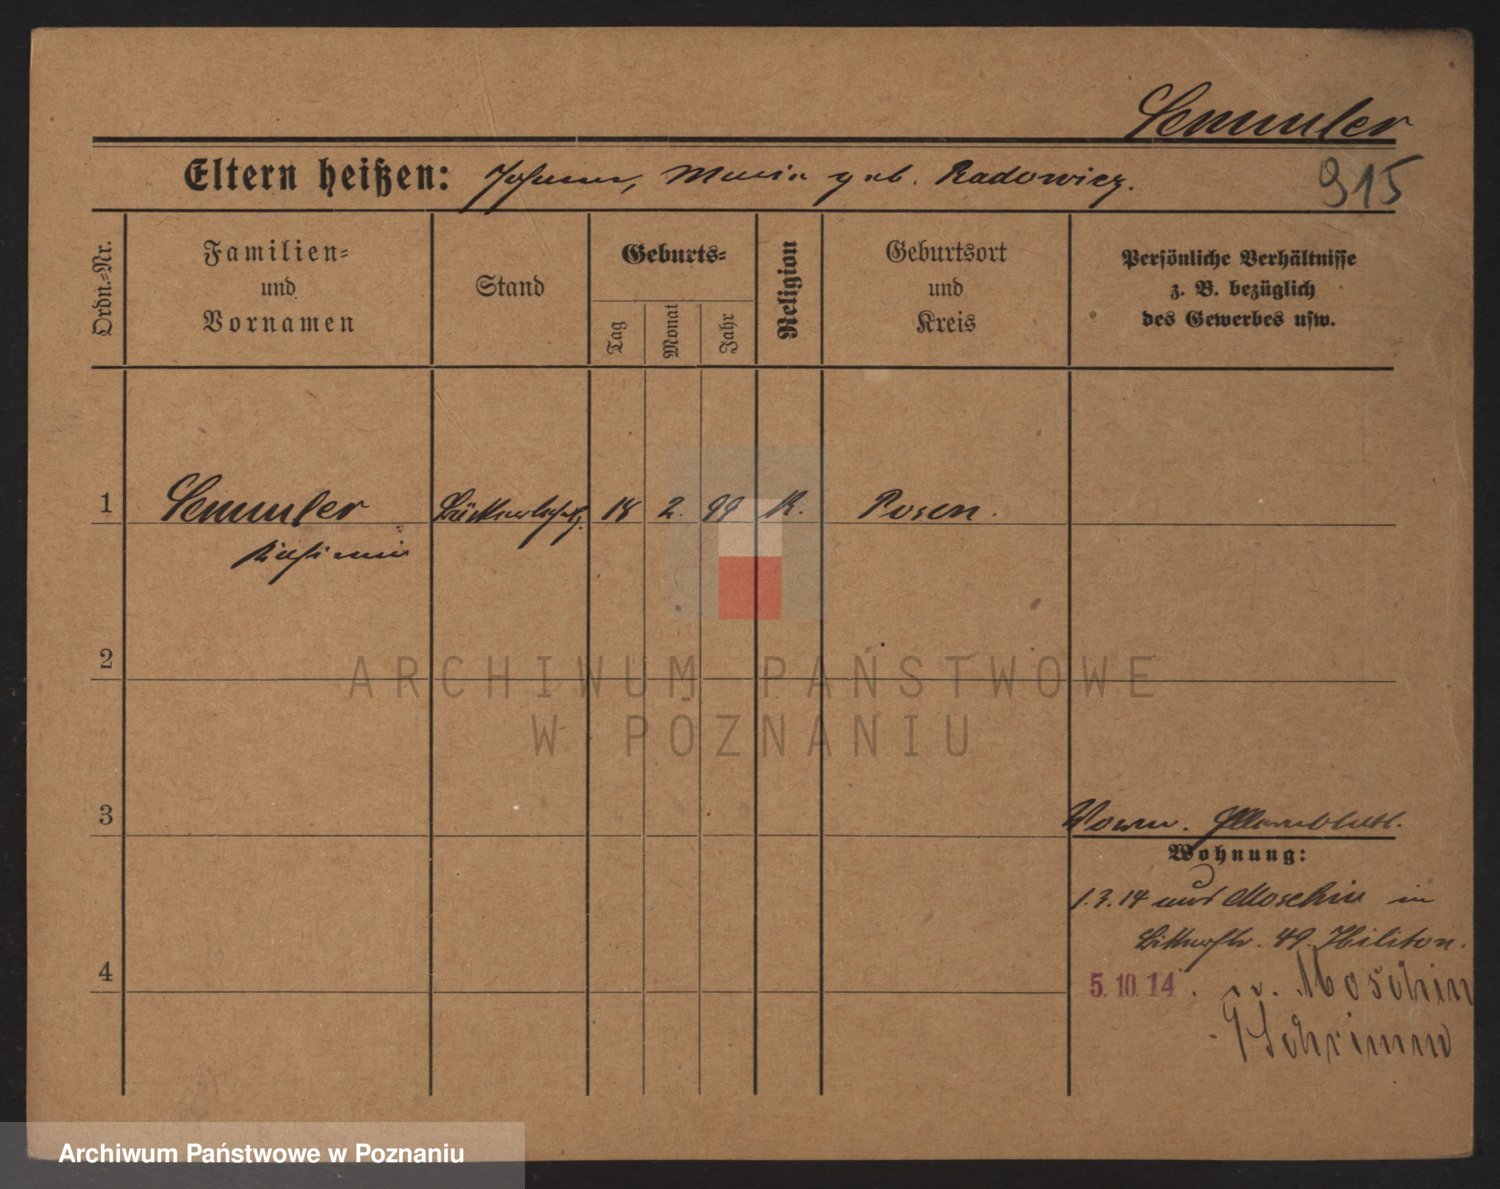 Semmler
Eltern heißen: Johann, Maria geb. Radowicz.
915
Ordn.-Nr.
Familien-
und
Vornamen
Stand
Geburts-
Tag
Monat
Jahr
Religion
Geburtsort
und
Kreis
Persönliche Verhältnisse
z. B. bezüglich
des Gewerbes usw.
1 Semmler 18 2. 99 K. Posen.
Kasimir
2
ARCHIWUM PAŃSTWOWE
W POZNANIU
3
Wohnung:
1.3.14 aus Moschin in
49.
4
5.10.14. n. Moschin
Schrimm
Archiwum Państwowe w Poznaniu